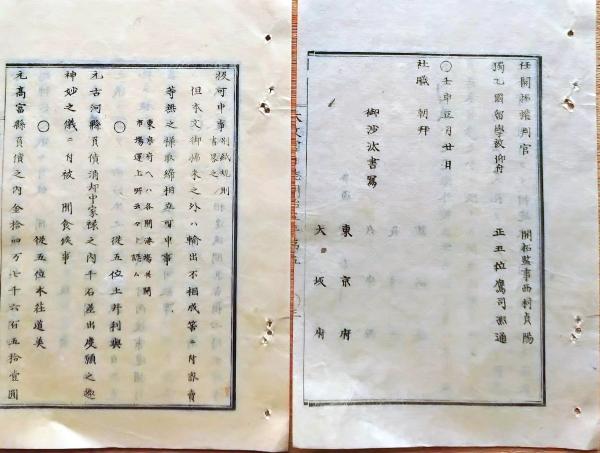 任開拓權判官 開拓監事西村貞陽
獨乙國留學被仰付 正五位鷹司熙通
〇壬申正月廿日
社職 朝拜
御沙汰書寫
東京府
大坂府
拔可申事別紙規則
但本文御構末之外ハ輸出不相成筈ニ付賣買
等無之樣取締相立可申事
東京府ヘハ各開港場共開
市場運上所云々ト認ム
〇 從五位土井利與
元古河縣負債消却中家祿之內千石差出度願之趣
神妙之儀ニ付被 聞食候事
〇 從五位本莊道美
元高富縣負債之內金拾四万七千六百五拾壹圓